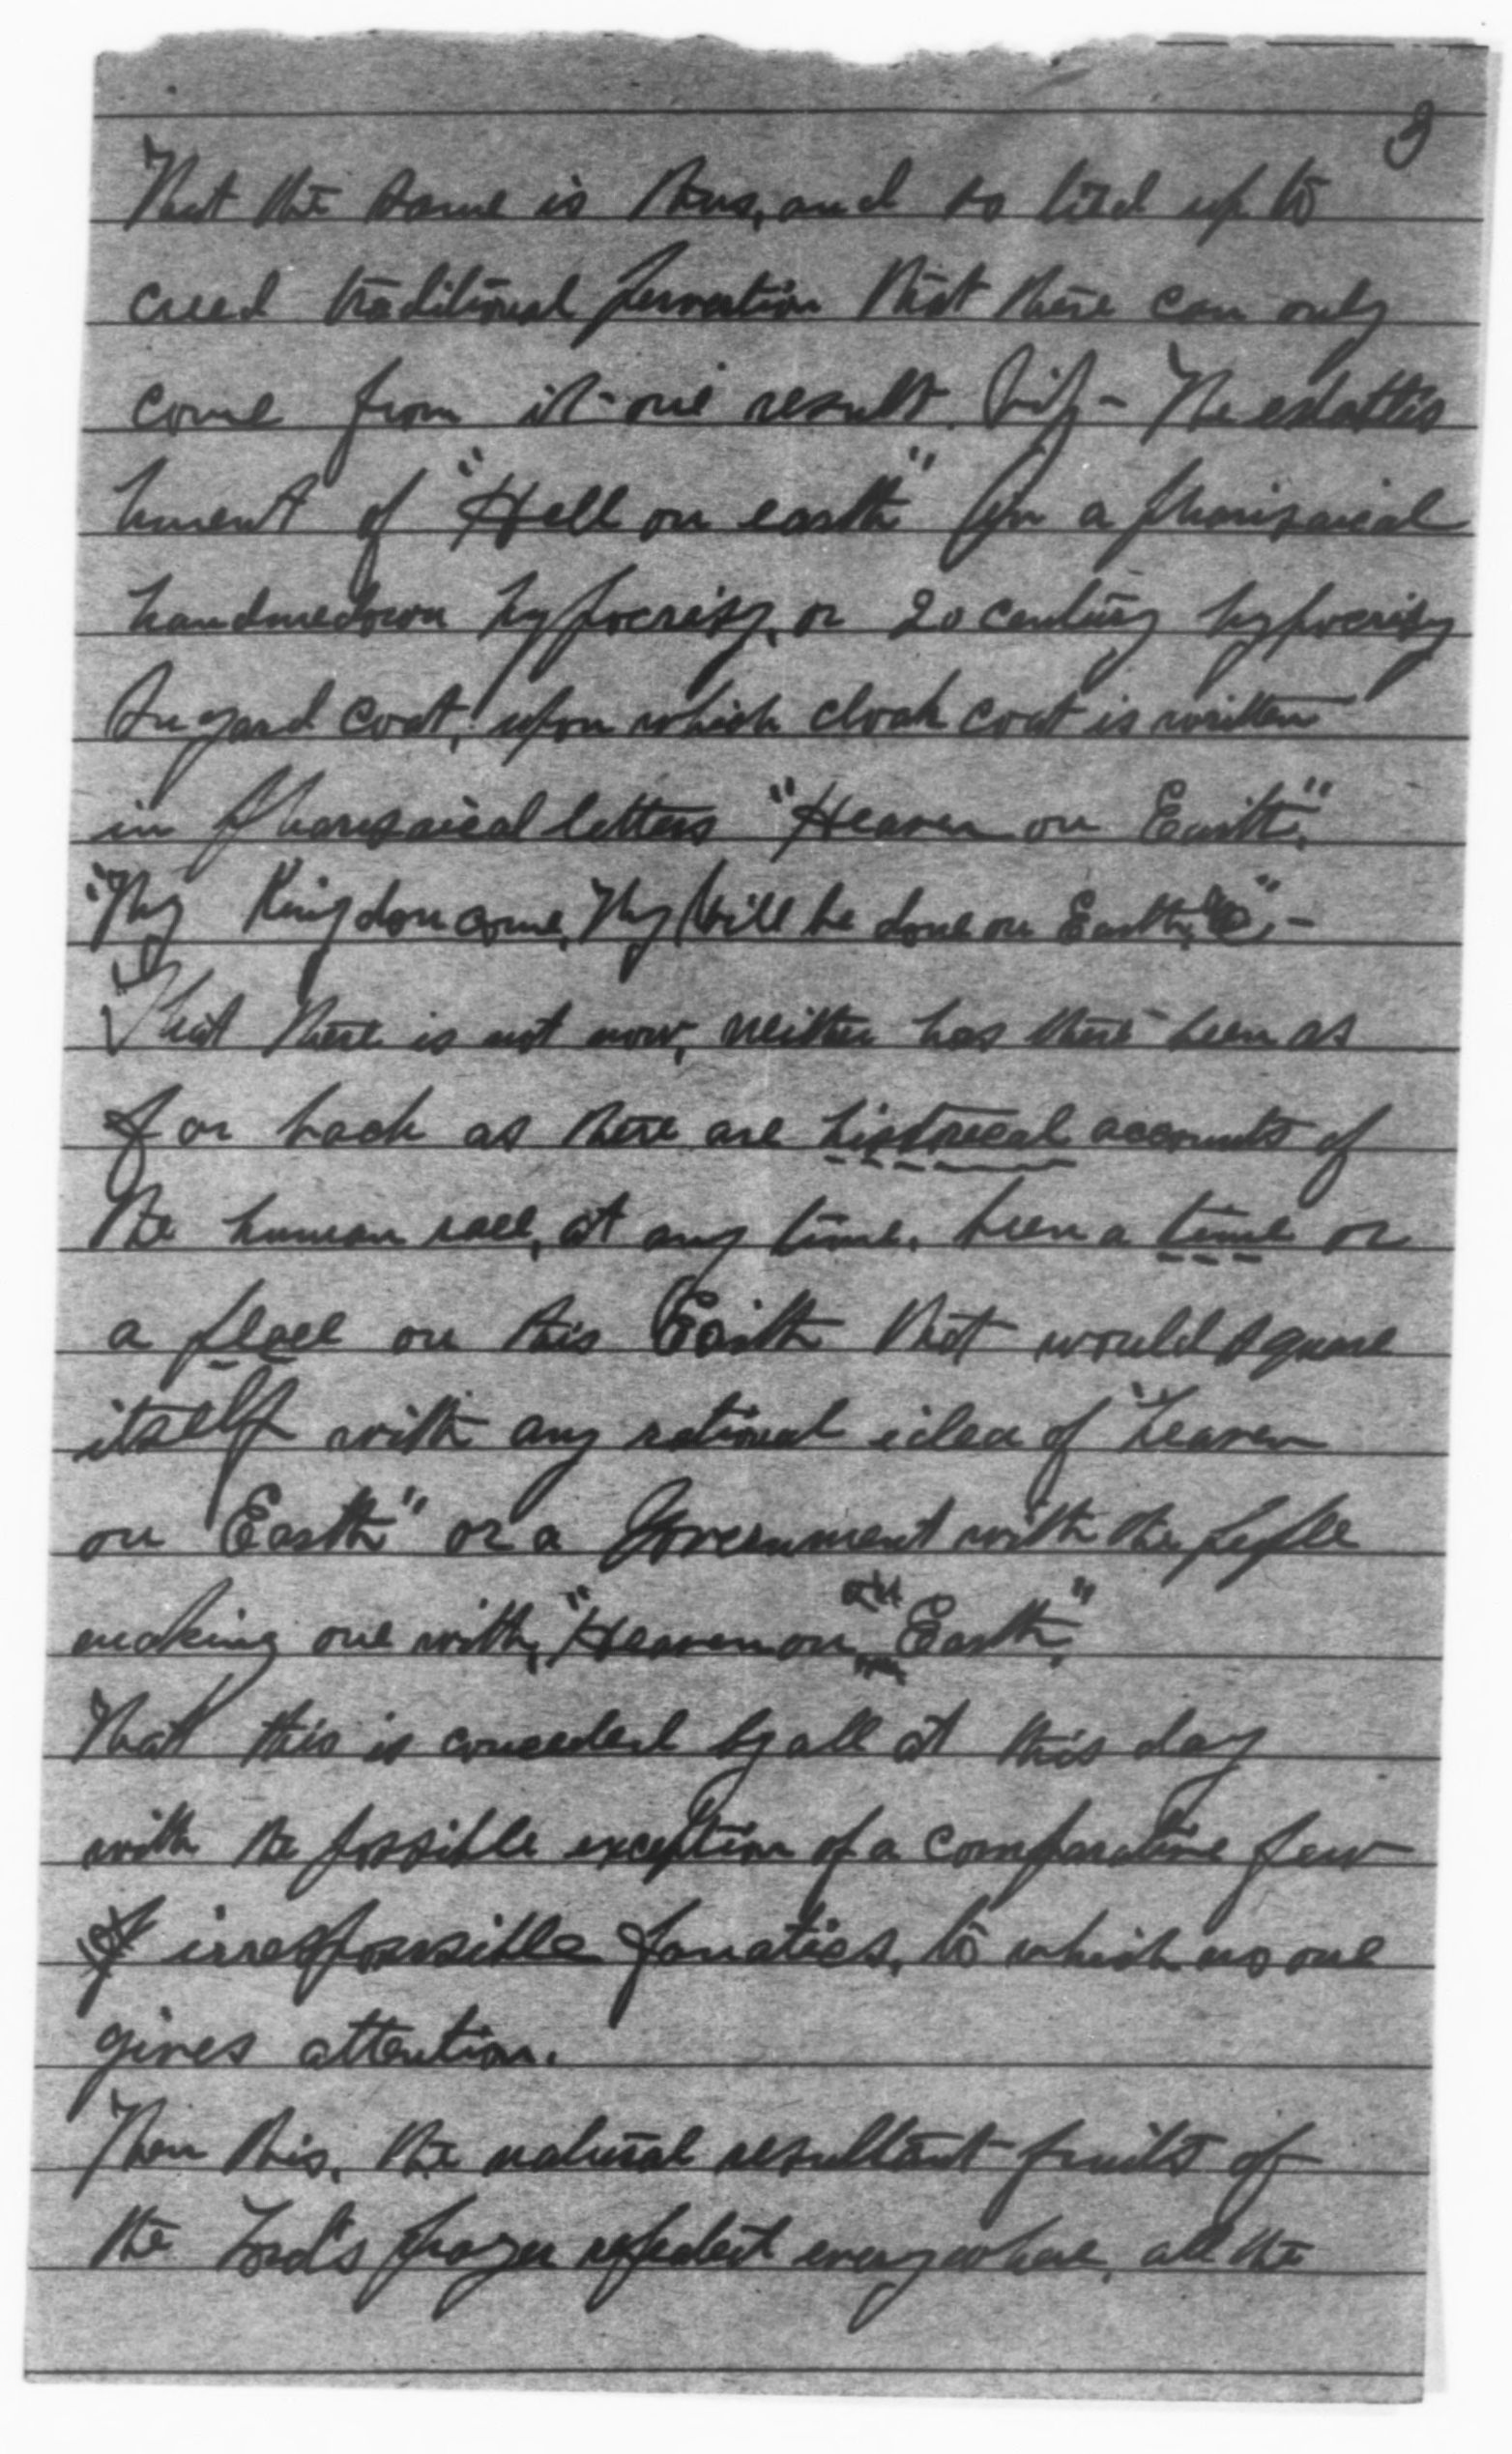 3
That the same is thus, and so tied up to
creed traditional perversion that there can only
come from it one result. Viz - The establis
hment of "Hell on earth" in a pharisaical
handmedown hypocrisy, or 20 century hypocrisy
sugard coat, upon which cloak coat is written
in pharisaical letters "Heaven on Earth".
"Thy Kingdom come, Thy Will be done on Earth, &c" -
That there is not now, neither has there been as
far back as there are historical accounts of
the human race, at any time, been a time or
a place on this Earth that would square
itself with any rational idea of "heaven
on Earth" or a Government with the people
making one with, "Heaven on Earth."
That this is conceded by all at this day
with the possible exception of a comparative few
of irresponsible fanatics, to which no one
gives attention.
Then this, the natural resultant fruits of
the Lord's prayer repeated everywhere, all the